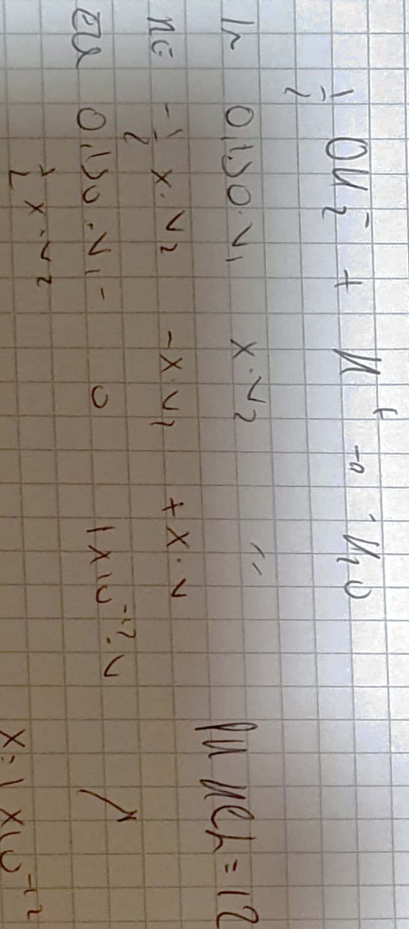 ½ OH₂⁻ + H⁺ → H₂O
In 0,150·V₁ x·V₂ "
nc -½ x·V₂ -x·V₂ +x·V
eu 0,150·V₁ - ½ x·V₂ 0 1x10⁻¹²·V /
pH HCl = 12
x = 1x10⁻¹²